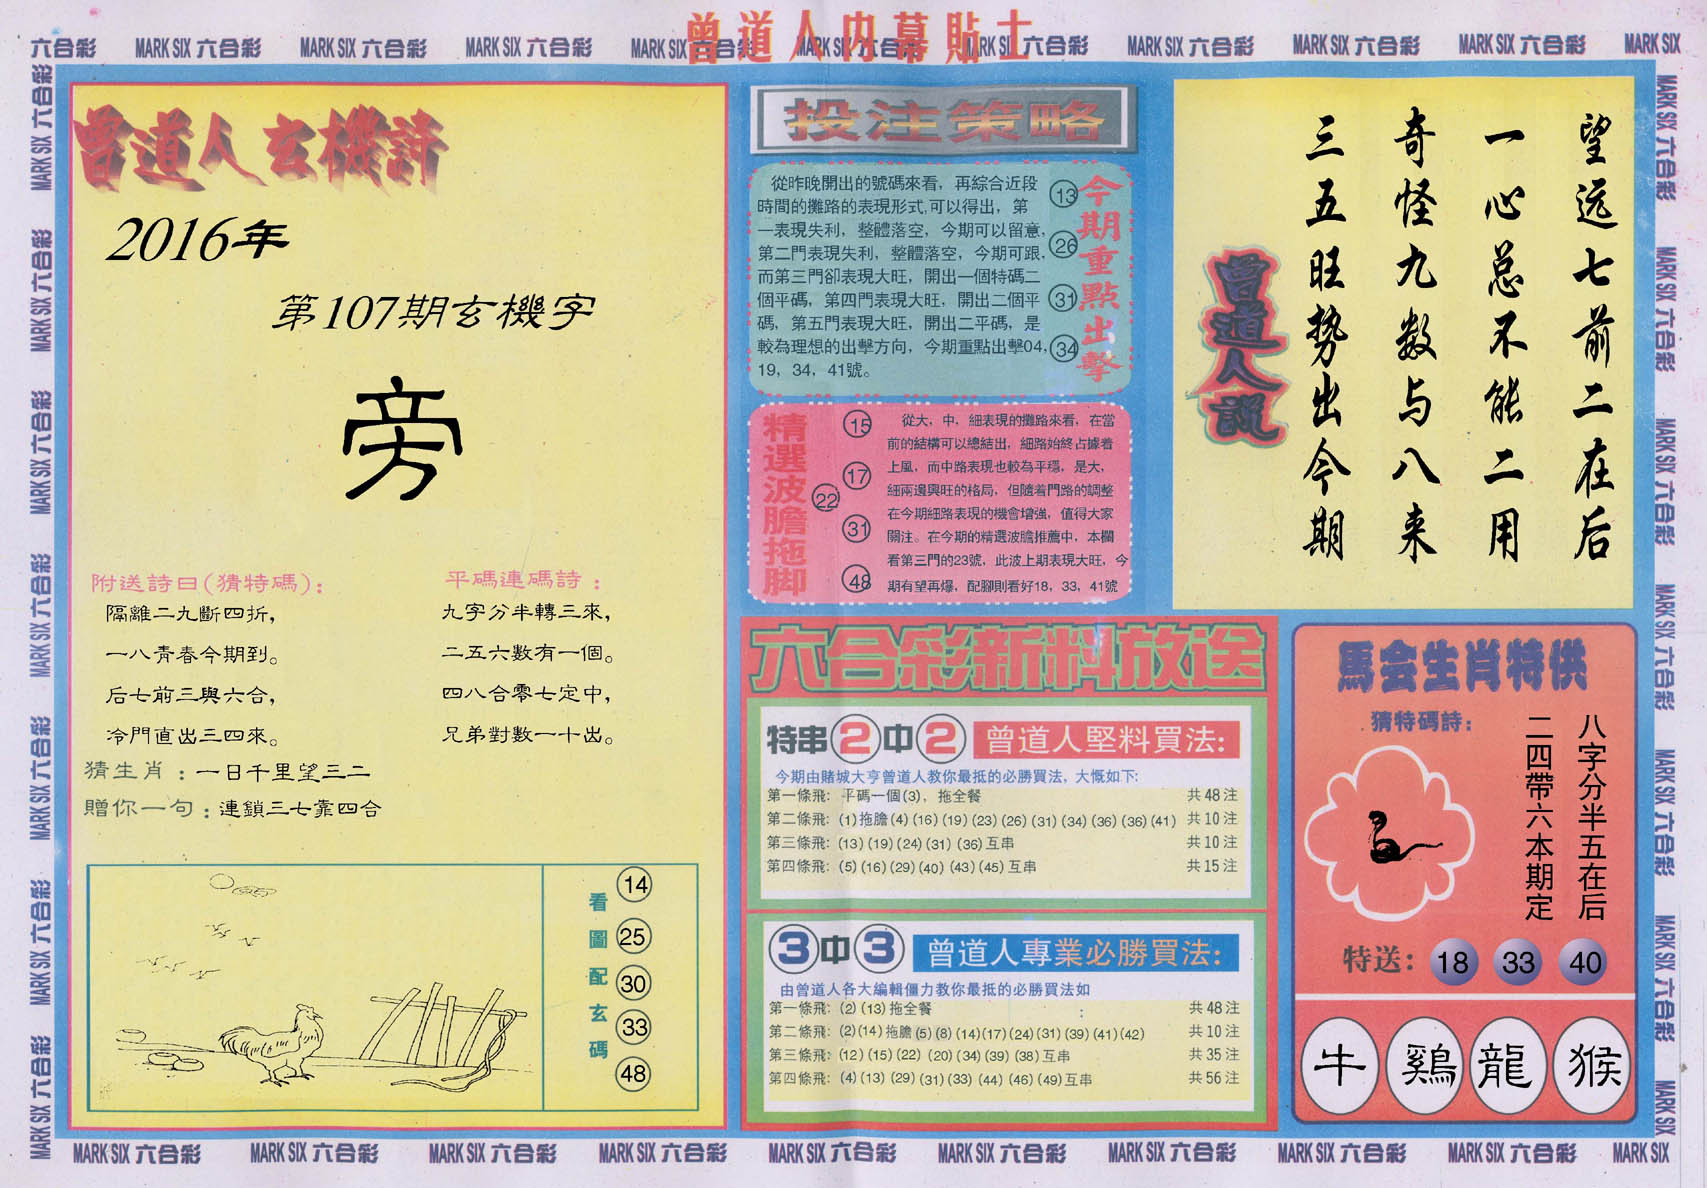 曾道人内幕貼士
六合彩 MARK SIX 六合彩 MARK SIX 六合彩 MARK SIX 六合彩 MARK SIX 六合彩 MARK SIX 六合彩 MARK SIX 六合彩 MARK SIX 六合彩 MARK SIX 六合彩 MARK SIX 六合彩 MARK SIX
曾道人玄機詩
2016年
第107期玄機字
旁
附送詩曰(猜特碼):
隔離二九斷四折,
一八青春今期到。
后七前三與六合,
冷門直出三四來。
平碼連碼詩:
九字分半轉三來,
二五六數有一個。
四八合零七定中,
兄弟對數一十出。
猜生肖:一日千里望三二
贈你一句:連鎖三七靠四合
看圖配玄碼
14
25
30
33
48
投注策略
從昨晚開出的號碼來看，再綜合近段
時間的攤路的表現形式,可以得出，第
一表現失利，整體落空，今期可以留意，
第二門表現失利，整體落空，今期可跟，
而第三門卻表現大旺，開出一個特碼二
個平碼，第四門表現大旺，開出二個平
碼，第五門表現大旺，開出二平碼，是
較為理想的出擊方向，今期重點出擊04,
19，34，41號。
13
26
31
34
今期重點出擊
精選波膽拖脚
15
17
22
31
48
從大，中，細表現的攤路來看，在當
前的結構可以總結出，細路始終占據着
上風，而中路表現也較為平穩，是大，
細兩邊興旺的格局，但隨着門路的調整
在今期細路表現的機會增強，值得大家
關注。在今期的精選波膽推薦中，本欄
看第三門的23號，此波上期表現大旺，今
期有望再爆，配腳則看好18，33，41號
六合彩新料放送
特串2中2 曾道人堅料買法:
今期由賭城大亨曾道人教你最抵的必勝買法，大慨如下:
第一條飛: 平碼一個(3)，拖全餐 共48注
第二條飛: (1)拖膽(4)(16)(19)(23)(26)(31)(34)(36)(36)(41) 共10注
第三條飛: (13)(19)(24)(31)(36)互串 共10注
第四條飛: (5)(16)(29)(40)(43)(45)互串 共15注
3中3 曾道人專業必勝買法:
由曾道人各大編輯僵力教你最抵的必勝買法如
第一條飛: (2)(13)拖全餐 共48注
第二條飛: (2)(14)拖膽(5)(8)(14)(17)(24)(31)(39)(41)(42) 共10注
第三條飛: (12)(15)(22)(20)(34)(39)(38)互串 共35注
第四條飛: (4)(13)(29)(31)(33)(44)(46)(49)互串 共56注
望远七前二在后
一心总不能二用
奇怪九数与八来
三五旺势出今期
曾道人説
馬会生肖特供
猜特碼詩:
八字分半五在后
二四帶六本期定
特送: 18 33 40
牛 鷄 龍 猴
MARK SIX 六合彩 MARK SIX 六合彩 MARK SIX 六合彩 MARK SIX 六合彩 MARK SIX 六合彩 MARK SIX 六合彩 MARK SIX 六合彩 MARK SIX 六合彩 MARK SIX 六合彩 MARK SIX